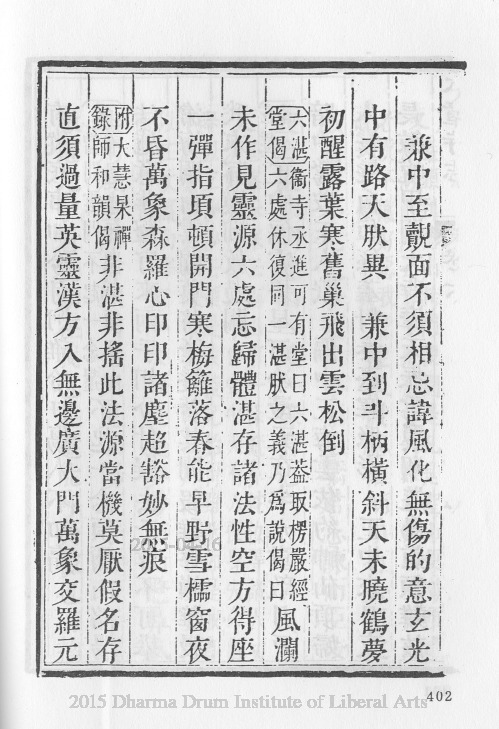 兼中至覿面不須相忌諱風化無傷的意玄光
中有路天肰異　兼中到斗柄橫斜天未曉鶴夢
初醒露葉寒舊巢飛出雲松倒
六湛堂偈衞寺丞進可有堂曰六湛葢取楞嚴經六處休復同一湛肰之義乃爲說偈曰風瀾
未作見靈源六處忘歸體湛存諸法性空方得座
一彈指頃頓開門寒梅籬落春能早野雪櫺窗夜
不昏萬象森羅心印印諸塵超豁妙無痕
附錄大慧杲禪師和韻偈非湛非搖此法源當機莫厭假名存
直須過量英靈漢方入無邊廣大門萬象交羅元
402
2015 Dharma Drum Institute of Liberal Arts